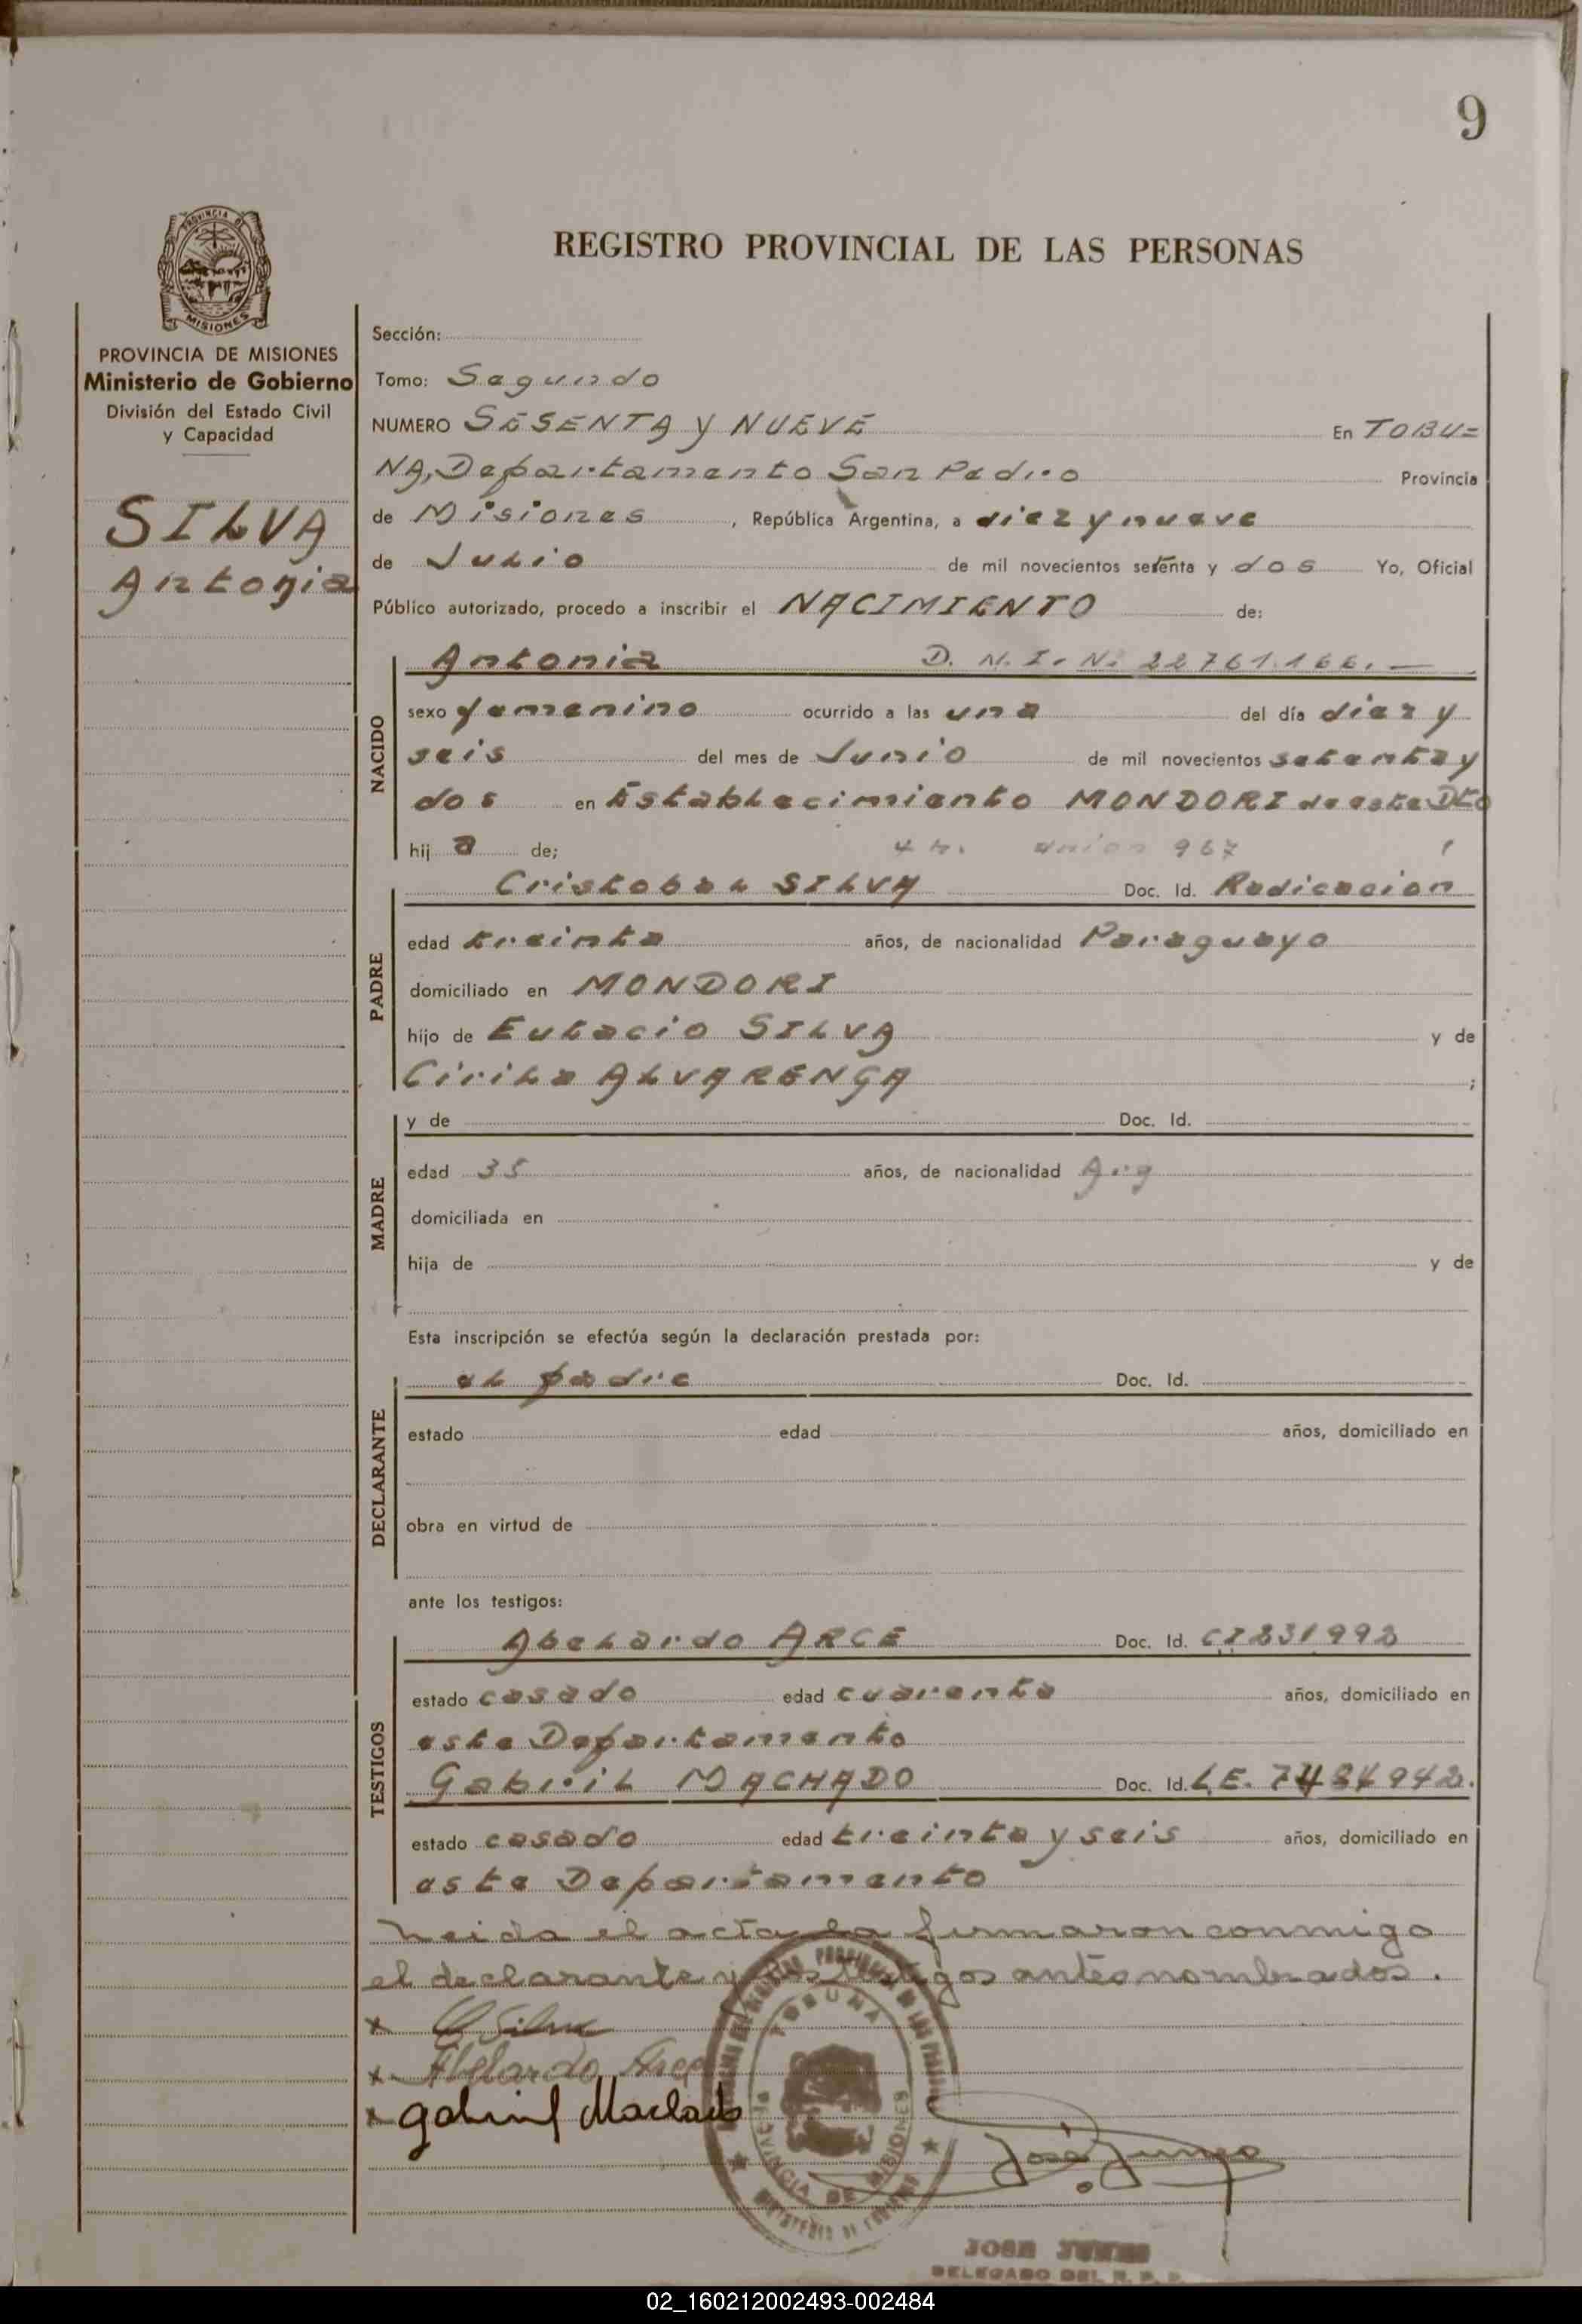 9
PROVINCIA DE
MISIONES
REGISTRO PROVINCIAL DE LAS PERSONAS
PROVINCIA DE MISIONES
Ministerio de Gobierno
División del Estado Civil
y Capacidad
SILVA
Antonia
Sección:
Tomo: Segundo
NUMERO SESENTA y NUEVE En TOBU=
NA, Departamento San Pedro Provincia
de Misiones, República Argentina, a diez y nueve
de Julio de mil novecientos setenta y dos Yo, Oficial
Público autorizado, procedo a inscribir el NACIMIENTO de:
NACIDO
Antonia D. N. I. N: 22761.166.—
sexo femenino ocurrido a las una del día diez y
seis del mes de Junio de mil novecientos setenta y
dos en Establecimiento MONDORI de este Dto
hija de; 4 h. union 967
PADRE
Cristobal SILVA Doc. Id. Radicacion
edad treinta años, de nacionalidad Paraguayo
domiciliado en MONDORI
hijo de Eulacio SILVA y de
Cirila ALVARENGA;
MADRE
y de Doc. Id.
edad 35 años, de nacionalidad Arg
domiciliada en
hija de y de
Esta inscripción se efectúa según la declaración prestada por:
DECLARANTE
el padre Doc. Id.
estado edad años, domiciliado en
obra en virtud de
ante los testigos:
TESTIGOS
Abelardo ARCE Doc. Id. CI 231992
estado casado edad cuarenta años, domiciliado en
este Departamento
Gabriil MACHADO Doc. Id. L.E. 7484942.
estado casado edad treinta y seis años, domiciliado en
este Departamento
Leida el acta la firmaron conmigo
el declarante y los testigos antes nombrados.
x C Silva
x Abelardo Arce
x gabriel Machado
TOBUNA
PROVINCIA DE MISIONES
MINISTERIO DE GOBIERNO
José Junes
JOSE JUNES
DELEGADO DEL R. P. P.
02_160212002493-002484